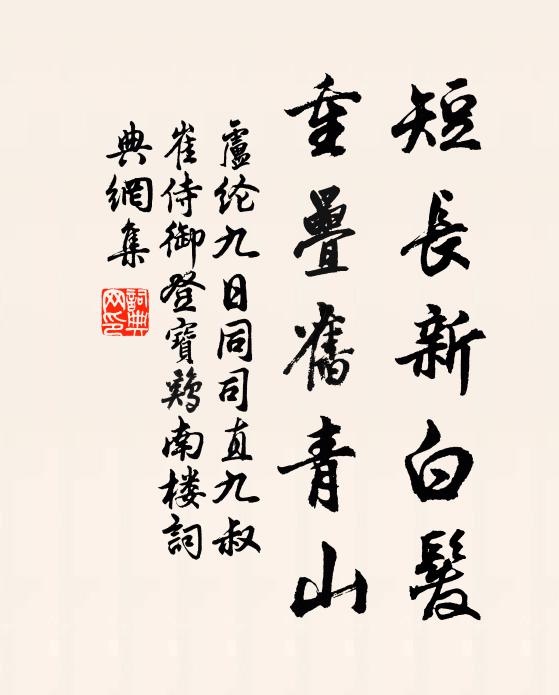 短長新白髮
重疊舊青山
盧纶九日同司直九叔
崔侍御登寶鷄南楼詞
典網集
詞典
网印